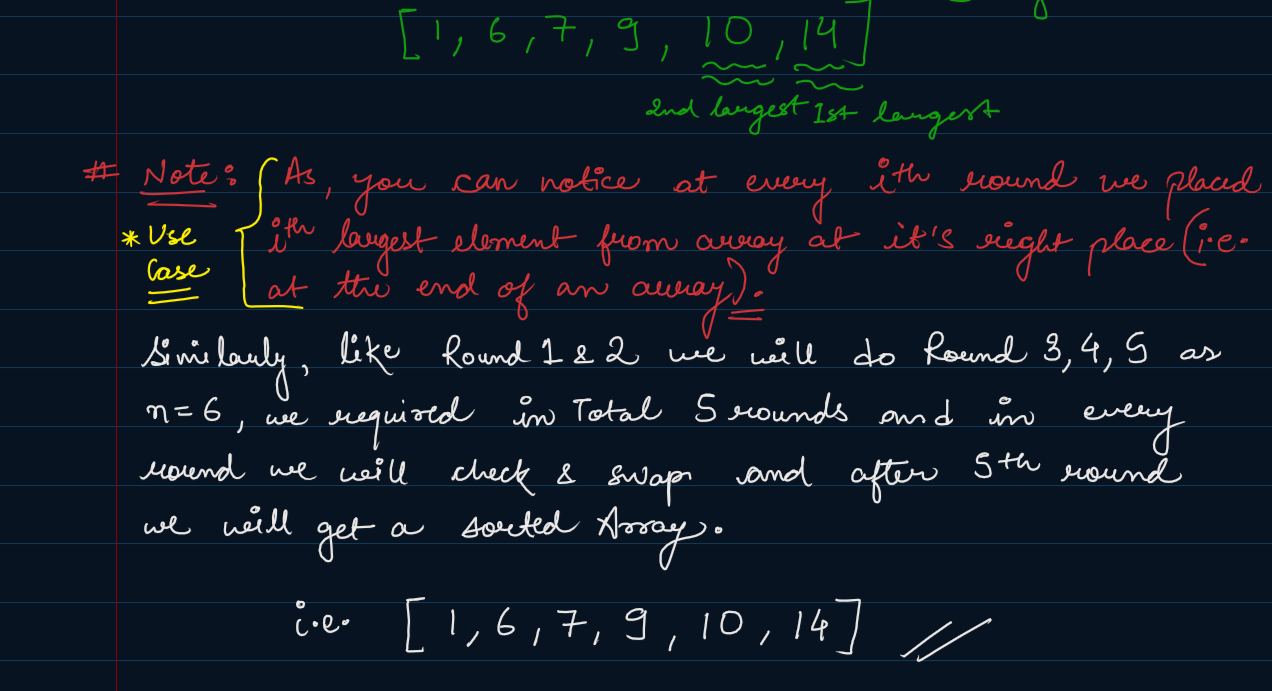 [1, 6, 7, 9, 10, 14]
2nd largest 1st largest
# Note: As, you can notice at every ith round we placed
* Use ith largest element from array at it's right place (i.e.
Case at the end of an array).
Similarly, like Round 1 & 2 we will do Round 3, 4, 5 as
n=6, we required in Total 5 rounds and in every
round we will check & swap and after 5th round
we will get a sorted Array.
i.e. [1, 6, 7, 9, 10, 14]